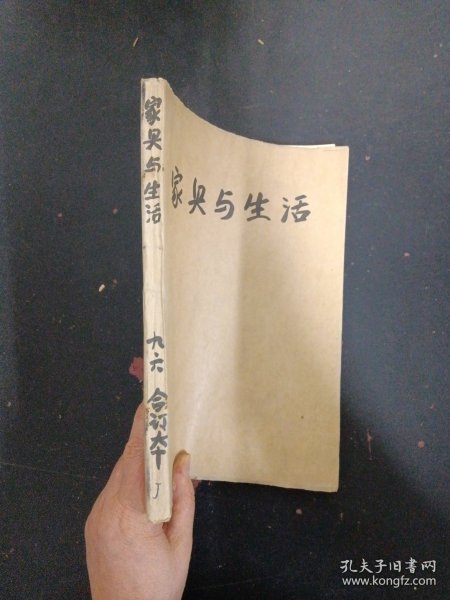 家具与生活
九六 合订本 J
家具与生活
孔夫子旧书网
www.kongfz.com